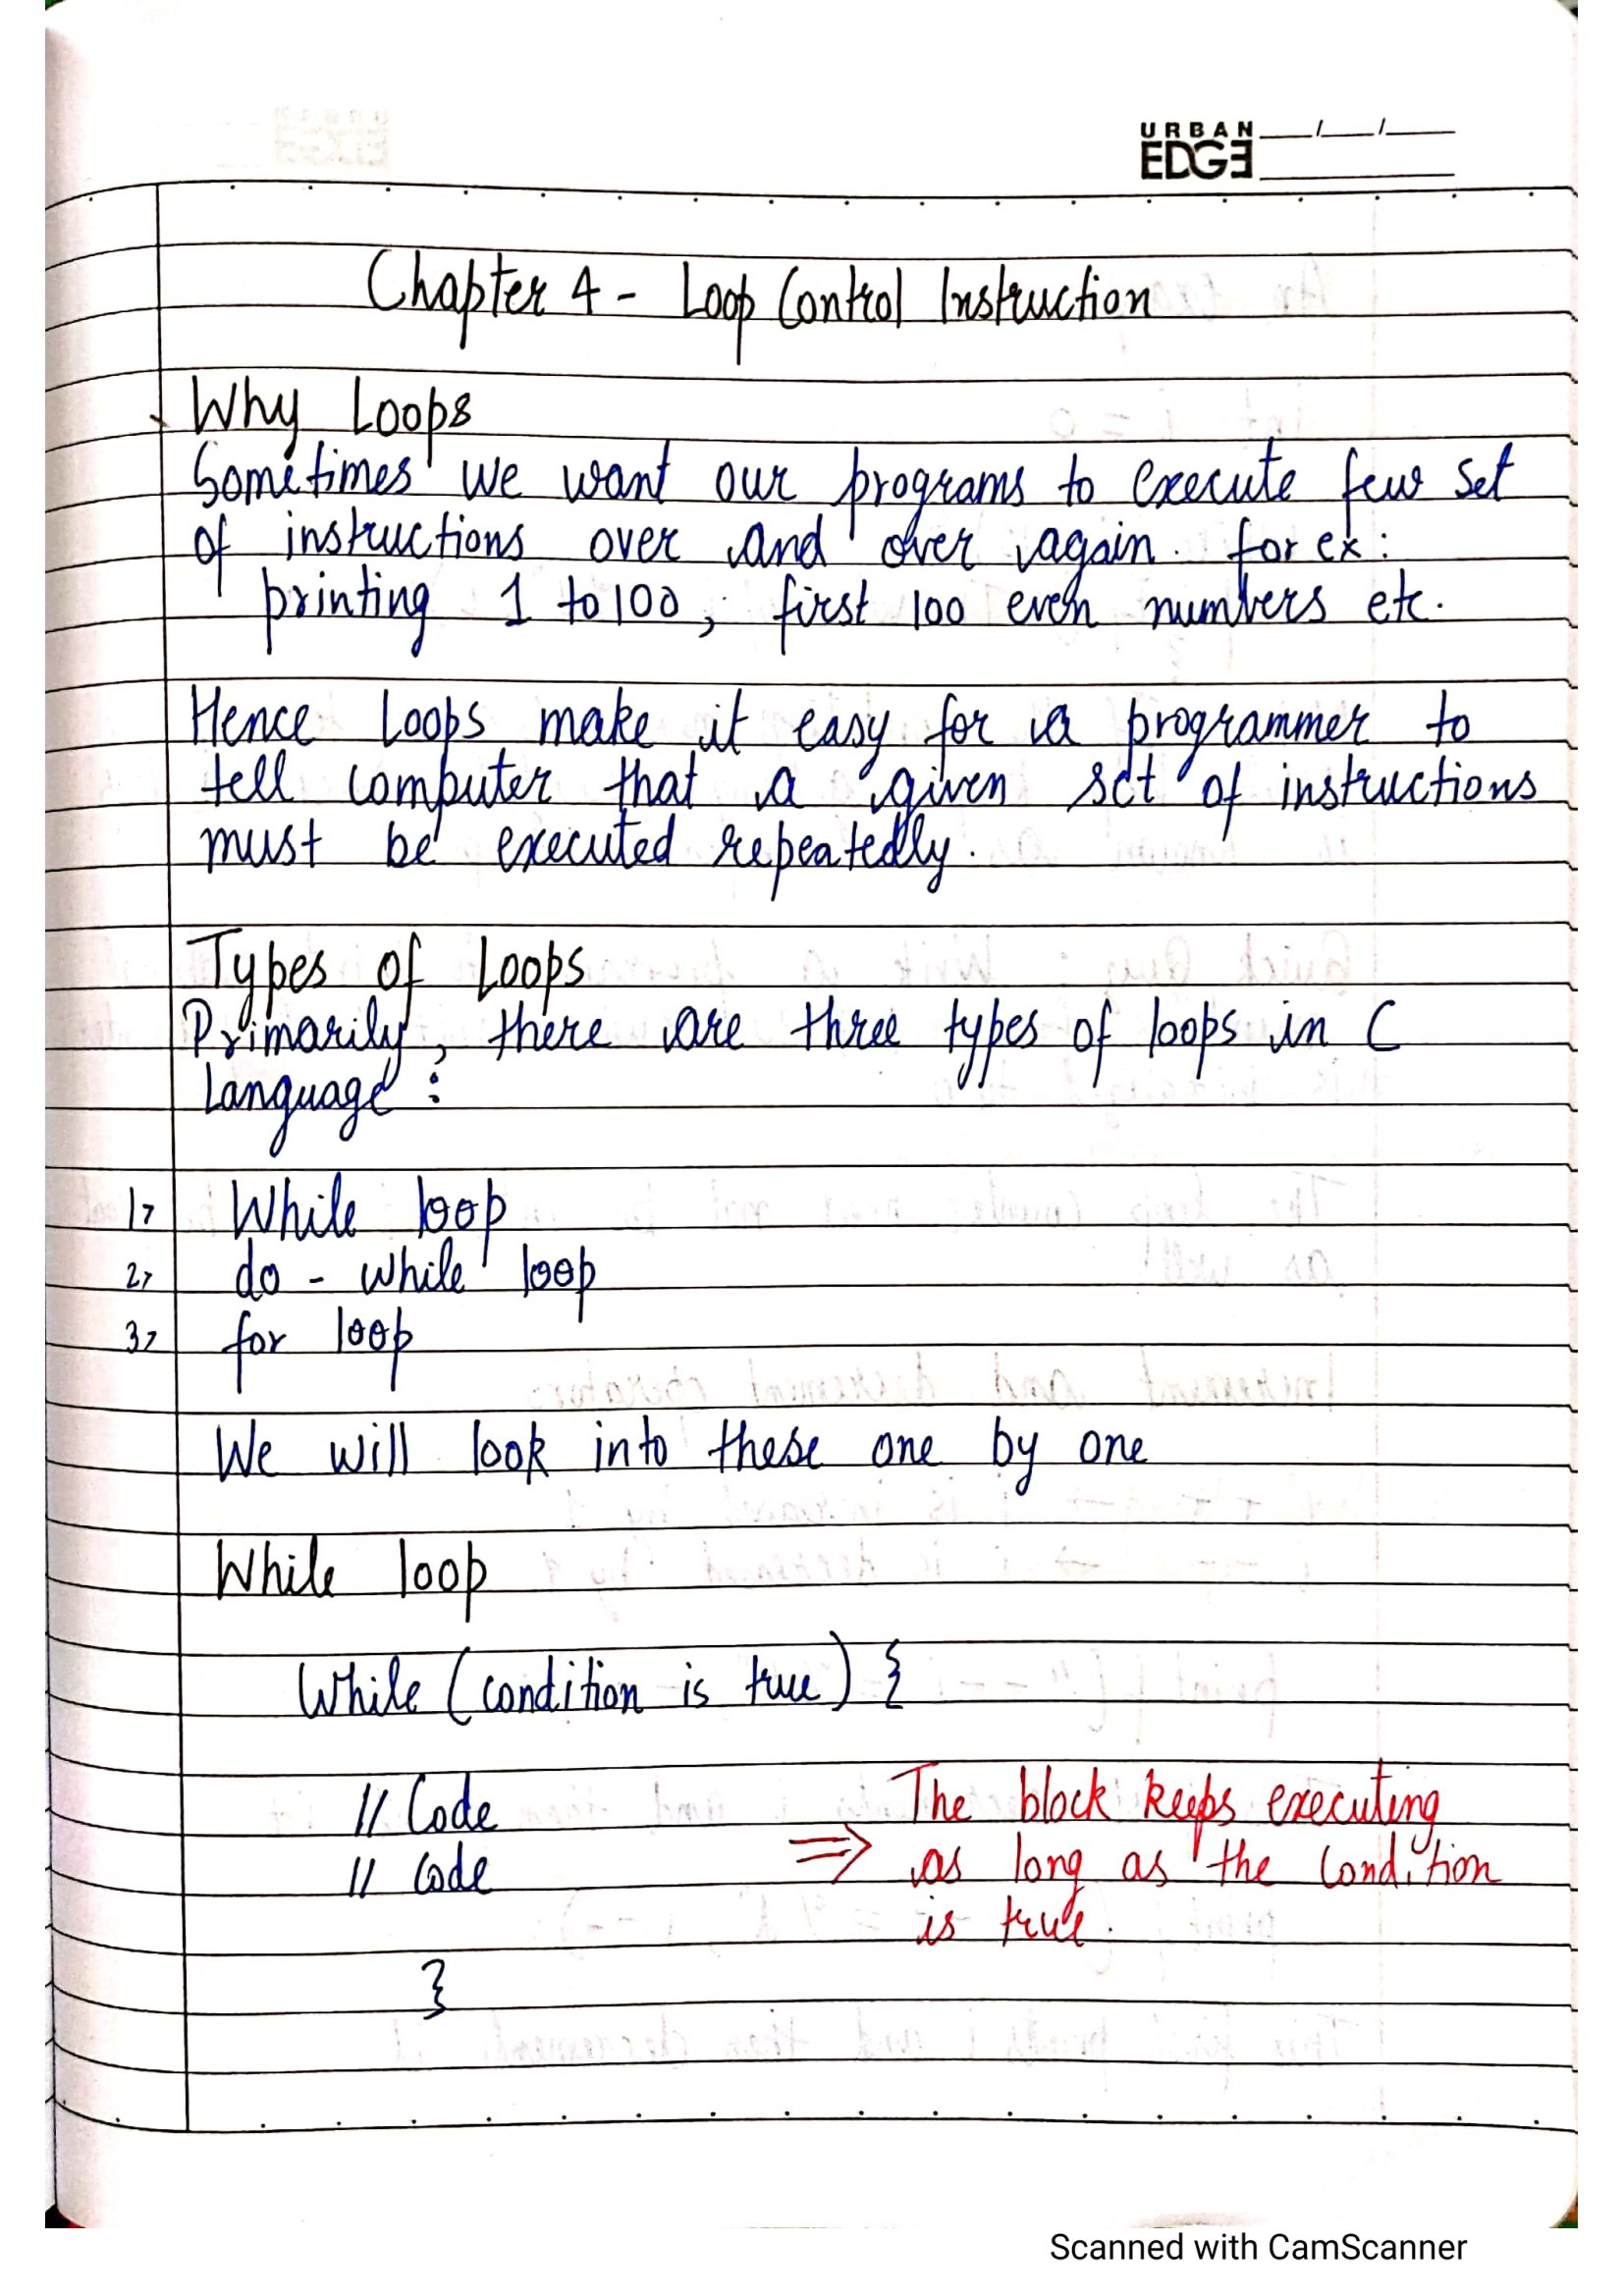 URBAN
EDGE
Chapter 4 - Loop Control Instruction
Why Loops
Sometimes we want our programs to execute few set
of instructions over and over again. for ex:
printing 1 to 100, first 100 even numbers etc.
Hence Loops make it easy for a programmer to
tell computer that a given set of instructions
must be executed repeatedly.
Types of Loops
Primarily, there are three types of loops in C
Language :
1> While loop
2> do - while loop
3> for loop
We will look into these one by one
While loop
While (condition is true) {
// Code
// Code
⇒ The block keeps executing
as long as the condition
is true.
}
Scanned with CamScanner